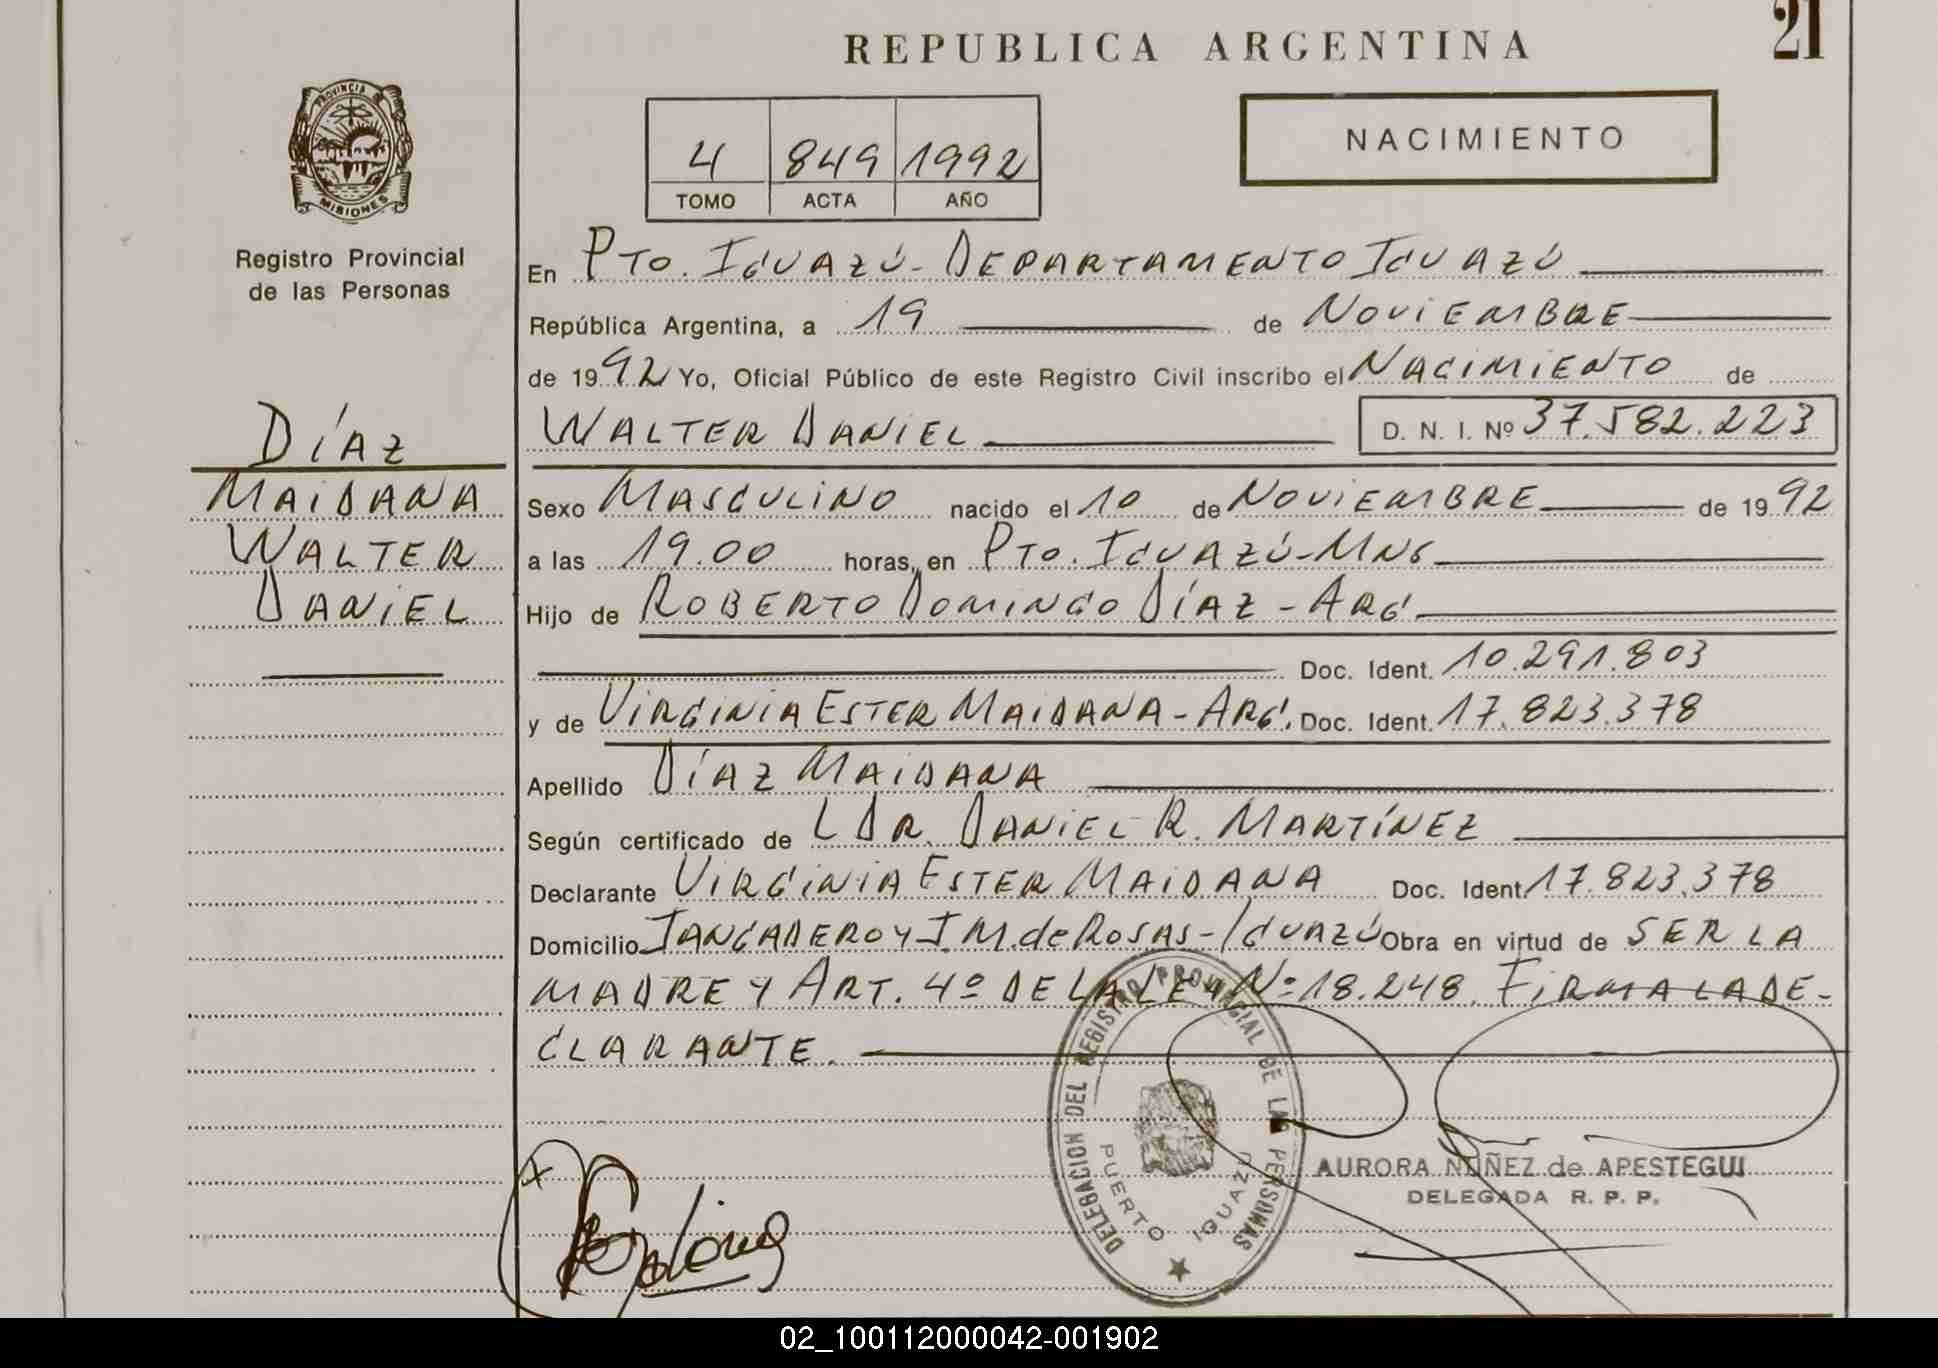 21
REPUBLICA ARGENTINA
PROVINCIA DE
MISIONES
Registro Provincial
de las Personas
4 849 1992
TOMO ACTA AÑO
NACIMIENTO
En PTO. IGUAZÚ - DEPARTAMENTO IGUAZÚ
República Argentina, a 19 de NOVIEMBRE
de 1992 Yo, Oficial Público de este Registro Civil inscribo el NACIMIENTO de
WALTER DANIEL D. N. I. Nº 37.582.223
DÍAZ
MAIDANA
WALTER
DANIEL
Sexo MASCULINO nacido el 10 de NOVIEMBRE de 1992
a las 19.00 horas, en PTO. IGUAZÚ - MNS
Hijo de ROBERTO DOMINGO DÍAZ - ARG.
Doc. Ident. 10.291.803
y de VIRGINIA ESTER MAIDANA - ARG. Doc. Ident. 17.823.378
Apellido DÍAZ MAIDANA
Según certificado de L DR. DANIEL R. MARTÍNEZ
Declarante VIRGINIA ESTER MAIDANA Doc. Ident. 17.823.378
Domicilio JANGADERO Y J M. de ROSAS - IGUAZÚ Obra en virtud de SER LA
MADRE Y ART. 4º DE LA LEY Nº 18.248. FIRMA LA DE-
CLARANTE.
DELEGACION DEL REGISTRO PROVINCIAL DE LAS PERSONAS
PUERTO IGUAZU
AURORA NUÑEZ de APESTEGUI
DELEGADA R. P. P.
02_100112000042-001902